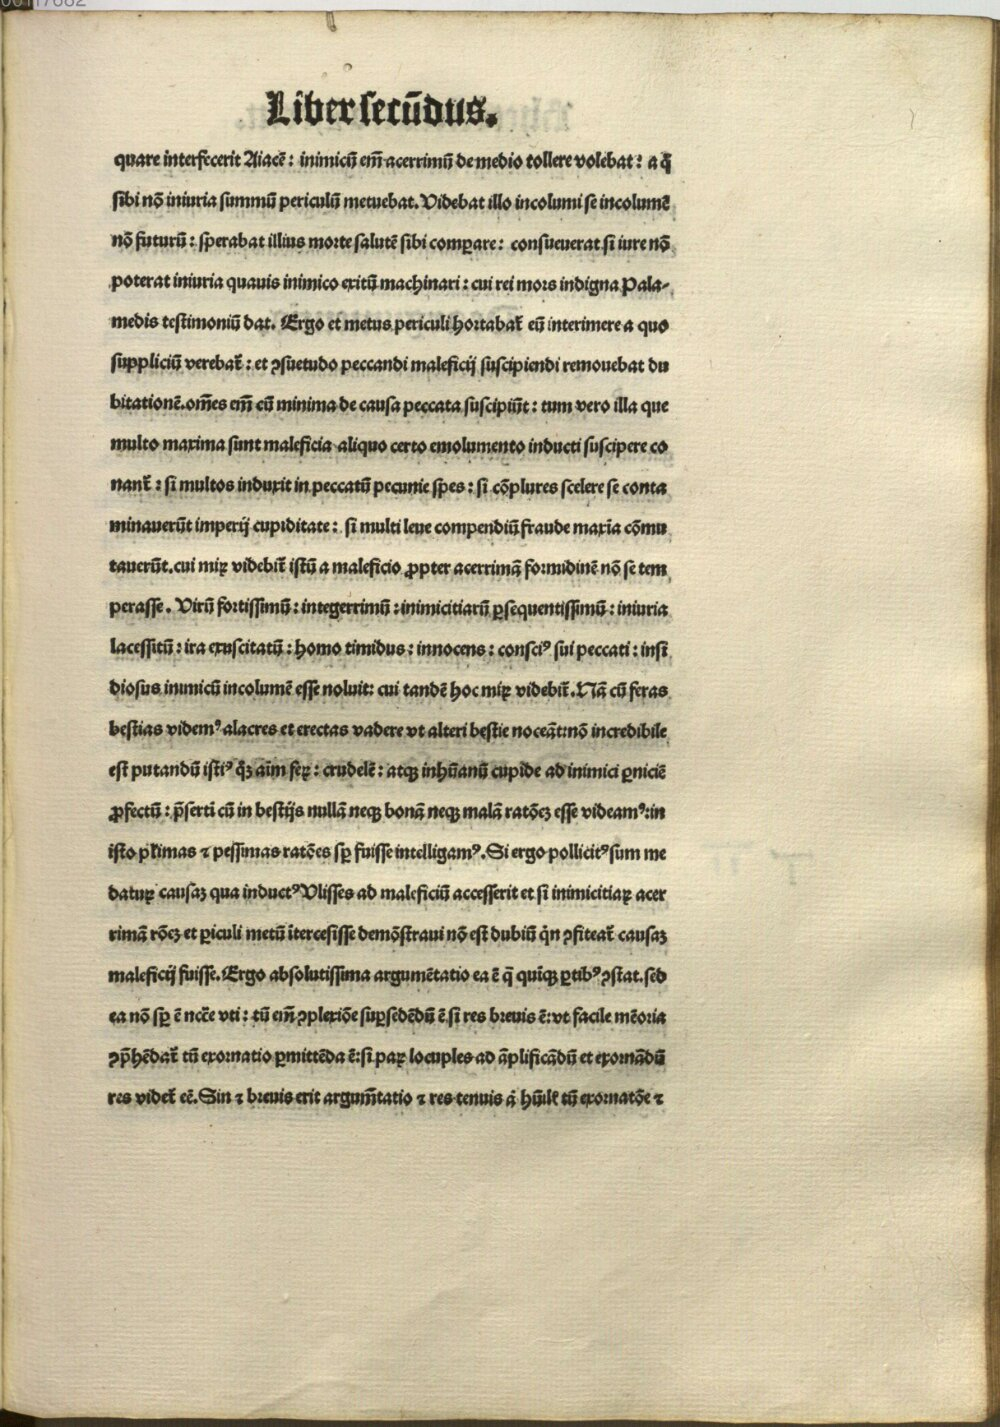 Liber secūdus.
quare interfecerit Aiacē : inimicū em̄ acerrimū de medio tollere volebat : a q̄
sibi nō iniuria summū periculū metuebat. Videbat illo incolumi se incolumē
nō futurū : sperabat illius morte salutē sibi comꝑare : consueuerat si iure nō
poterat iniuria quauis inimico exitū machinari : cui rei mors indigna Pala-
medis testimoniū dat. Ergo et metus periculi hortabat᷑ eū interimere a quo
suppliciū verebat᷑ : et ꝯsuetudo peccandi maleficij suscipiendi remouebat du
bitationē. om̄es em̄ cū minima de causa peccata suscipiūt : tum vero illa que
multo maxima sunt maleficia aliquo certo emolumento inducti suscipere co
nant᷑ : si multos induxit in peccatū pecunie spes : si cōplures scelere se conta
minauerūt imperij cupiditate : si multi leue compendiū fraude maxīa cōmu
tauerūt. cui miꝝ videbit᷑ istū a maleficio ꝓpter acerrimā formidinē nō se tem
perasse. Virū fortissimū : integerrimū : inimicitiarū ꝑsequentissimū : iniuria
lacessitū : ira exuscitatū : homo timidus : innocens : consciꝰ sui peccati : insi
diosus inimicū incolumē esse noluit : cui tandē hoc miꝝ videbit᷑. Nā cū feras
bestias videmꝰ alacres et erectas vadere vt alteri bestie noceāt : nō incredibile
est putandū istiꝰ q̄ꝫ aīm feꝝ : crudelē : atqꝫ inhūanū cupide ad inimici ꝑniciē
ꝓfectū : p̄serti cū in bestijs nullā neqꝫ bonā neqꝫ malā ratōeꝫ esse videamꝰ : in
isto pl̄imas ⁊ pessimas ratōes sꝑ fuisse intelligamꝰ. Si ergo pollicitꝰ sum me
datuꝝ causaꝫ qua inductꝰ Vlisses ad maleficiū accesserit et si inimicitiaꝝ acer
rimā rōeꝫ et ꝑiculi metū ītercesisse demōstraui nō est dubiū qn̄ ꝯfiteat᷑ causaꝫ
maleficij fuisse. Ergo absolutissima argumētatio ea ē q̄ quīqꝫ ꝑtibꝰ ꝯstat. sed
ea nō sꝑ ē ncc̄e vti : tū em̄ ꝯplexiōe suꝑsedēdū ē si res breuis ē : vt facile mēoria
ꝯp̄hēdat᷑ tū exornatio ꝑmittēda ē : si paꝝ locuples ad āplificādū et exornādū
res videt᷑ eē. Sin ⁊ breuis erit argum̄tatio ⁊ res tenuis a᷑ hūil᷑ tū exornatōe ⁊